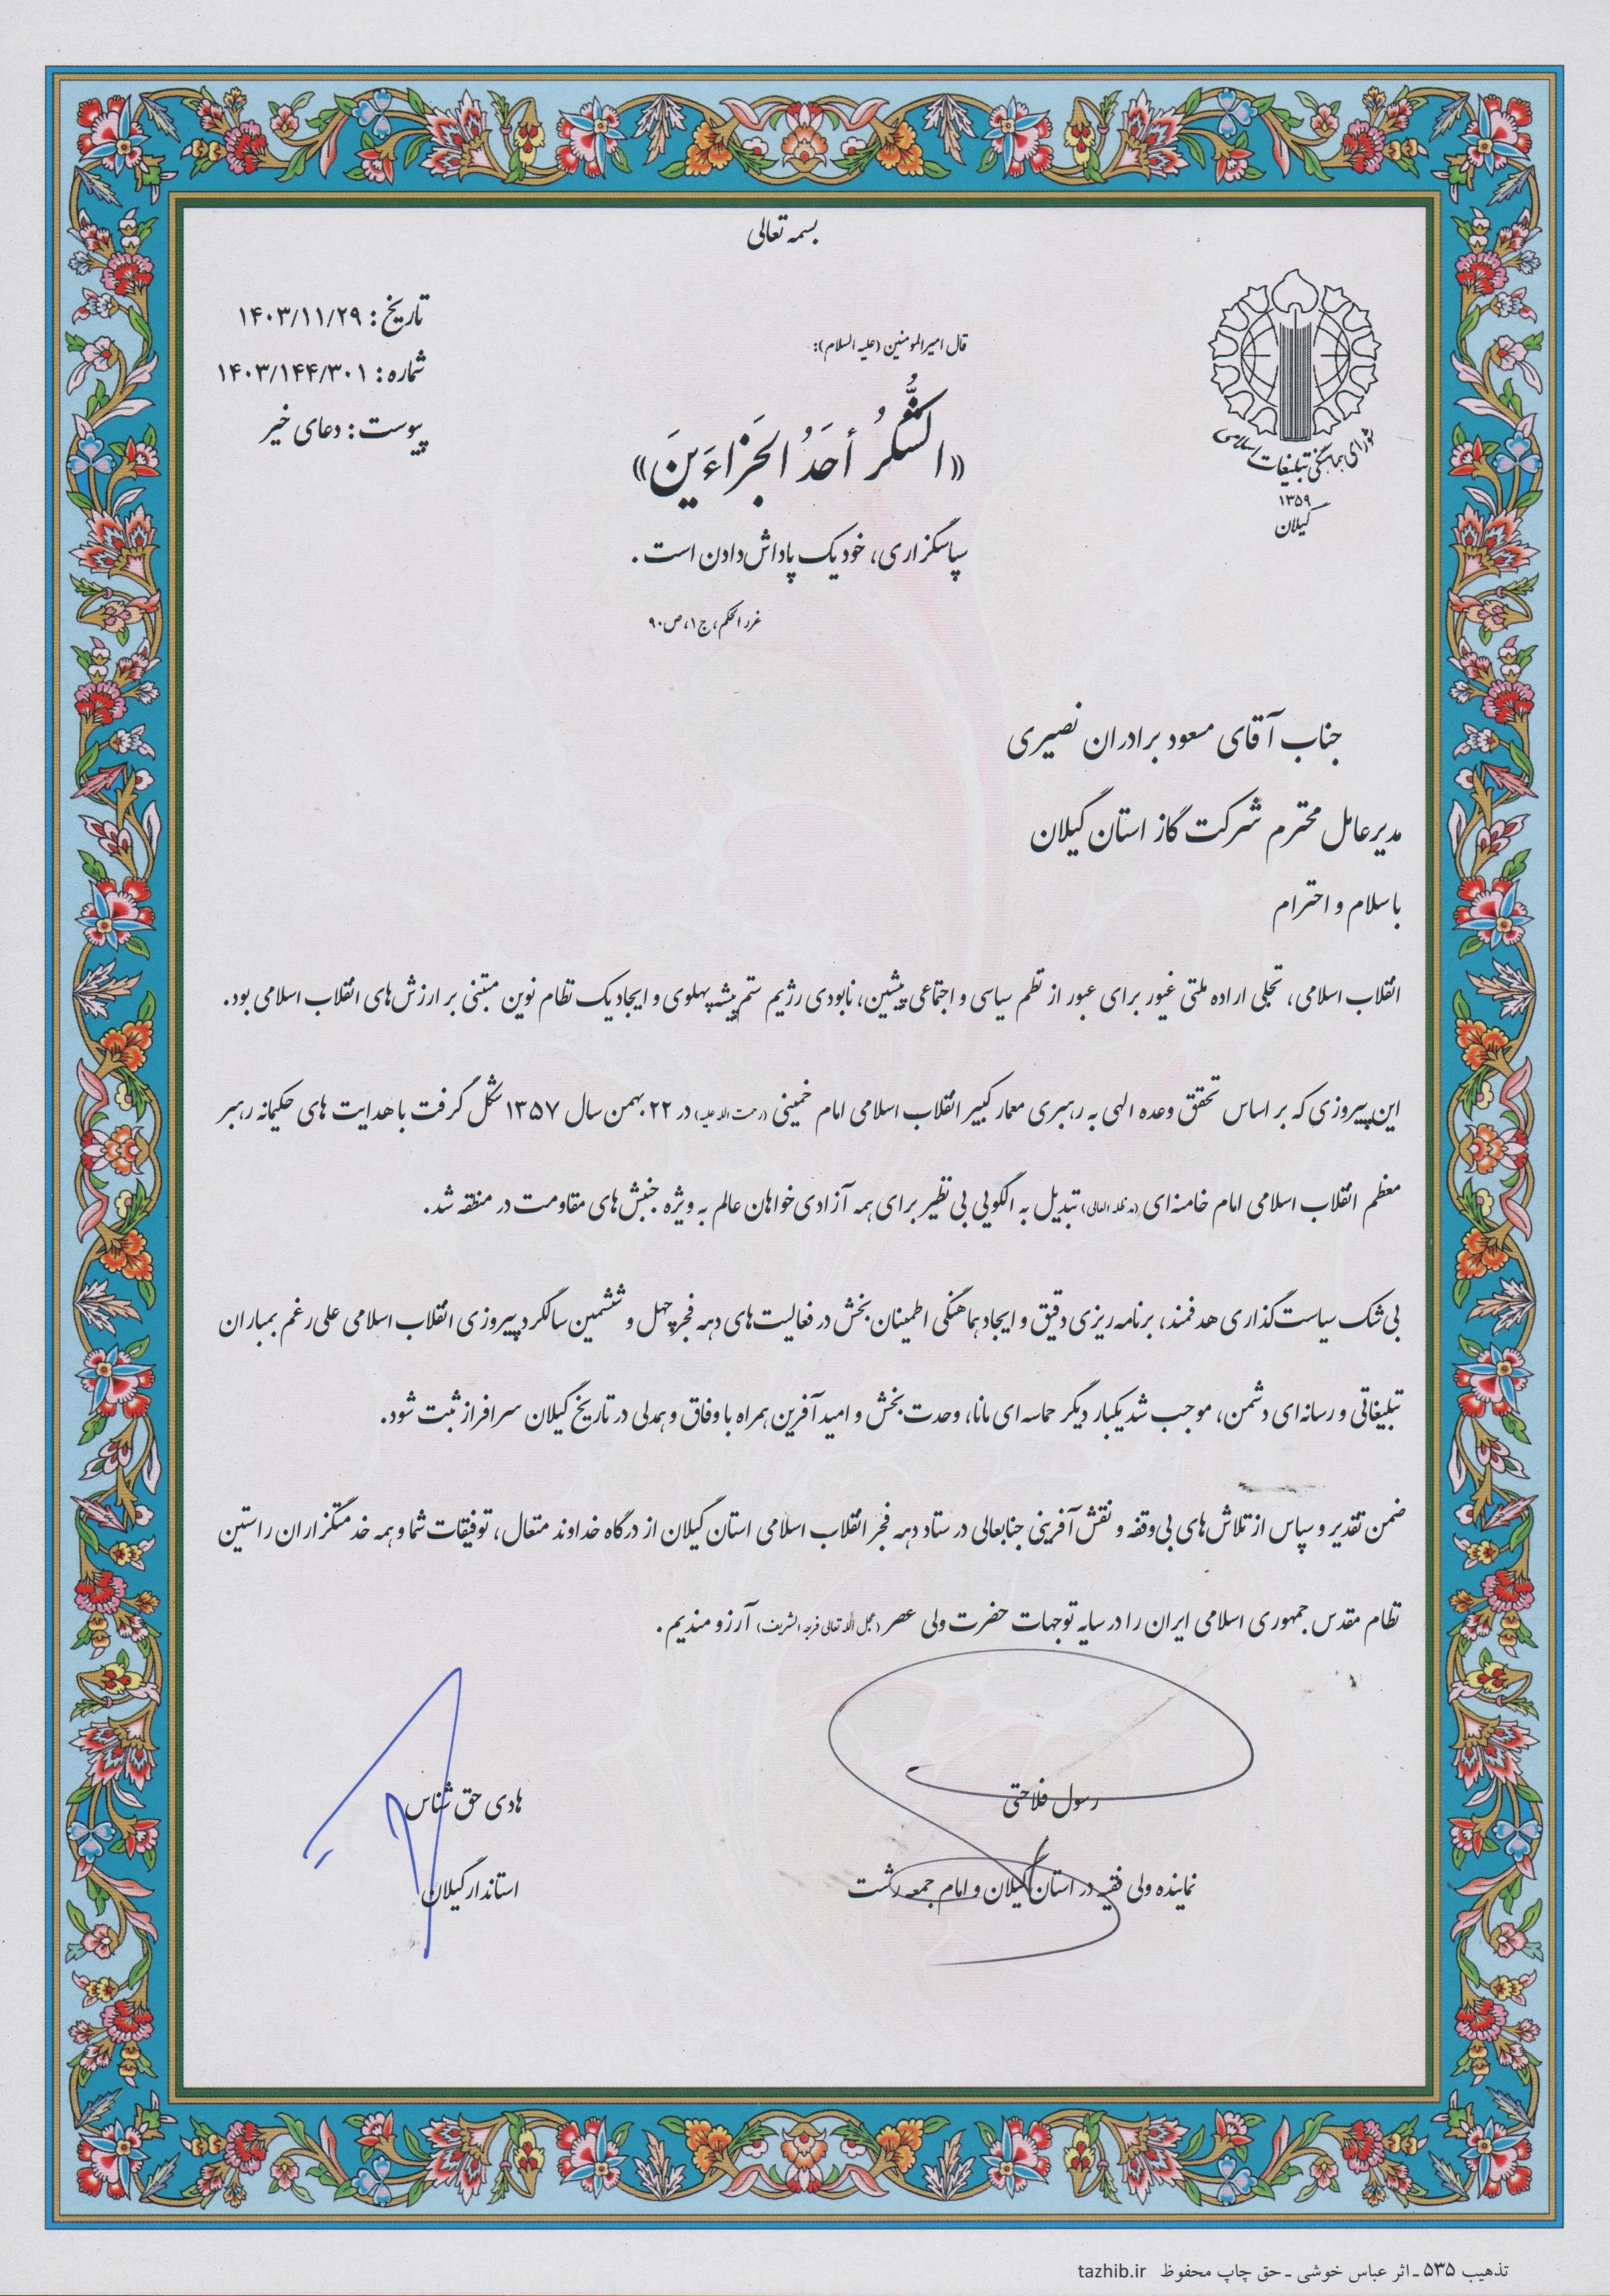 بسمه تعالی
شورای هماهنگی تبلیغات اسلامی
۱۳۵۹
گیلان
تاریخ : ۱۴۰۳/۱۱/۲۹
شماره : ۱۴۰۳/۱۴۴/۳۰۱
پیوست : دعای خیر
قال امیرالمومنین (علیه السلام):
«الشُّكرُ أحَدُ الجَزاءَینَ»
سپاسگزاری، خود یک پاداش دادن است .
غرر الحکم، ج۱، ص۹۰
جناب آقای مسعود برادران نصیری
مدیرعامل محترم شرکت گاز استان گیلان
با سلام و احترام
انقلاب اسلامی، تجلی اراده ملتی غیور برای عبور از نظم سیاسی و اجتماعی پیشین، نابودی رژیم ستم‌پیشه پهلوی و ایجاد یک نظام نوین مبتنی بر ارزش‌های انقلاب اسلامی بود.
این پیروزی که بر اساس تحقق وعده الهی به رهبری معمار کبیر انقلاب اسلامی امام خمینی (رحمت الله علیه) در ۲۲ بهمن سال ۱۳۵۷ شکل گرفت با هدایت های حکیمانه رهبر
معظم انقلاب اسلامی امام خامنه‌ای (مدظله العالی) تبدیل به الگویی بی نظیر برای همه آزادی‌خواهان عالم به ویژه جنبش‌های مقاومت در منطقه شد.
بی‌شک سیاست‌گذاری هدفمند، برنامه‌ریزی دقیق و ایجاد هماهنگی اطمینان‌بخش در فعالیت‌های دهه فجر چهل و ششمین سالگرد پیروزی انقلاب اسلامی علی رغم بمباران
تبلیغاتی و رسانه‌ای دشمن، موجب شد یکبار دیگر حماسه‌ای مانا، وحدت‌بخش و امید آفرین همراه با وفاق و همدلی در تاریخ گیلان سرافراز ثبت شود.
ضمن تقدیر و سپاس از تلاش‌های بی‌وقفه و نقش آفرینی جنابعالی در ستاد دهه فجر انقلاب اسلامی استان گیلان از درگاه خداوند متعال، توفیقات شما و همه خدمتگزاران راستین
نظام مقدس جمهوری اسلامی ایران را در سایه توجهات حضرت ولی عصر (عجل الله تعالی فرجه الشریف) آرزومندیم .
رسول فلاحتی
نماینده ولی فقیه در استان گیلان و امام جمعه رشت
هادی حق شناس
استاندار گیلان
تذهیب ۵۳۵ ـ اثر عباس خوشی ـ حق چاپ محفوظ tazhib.ir